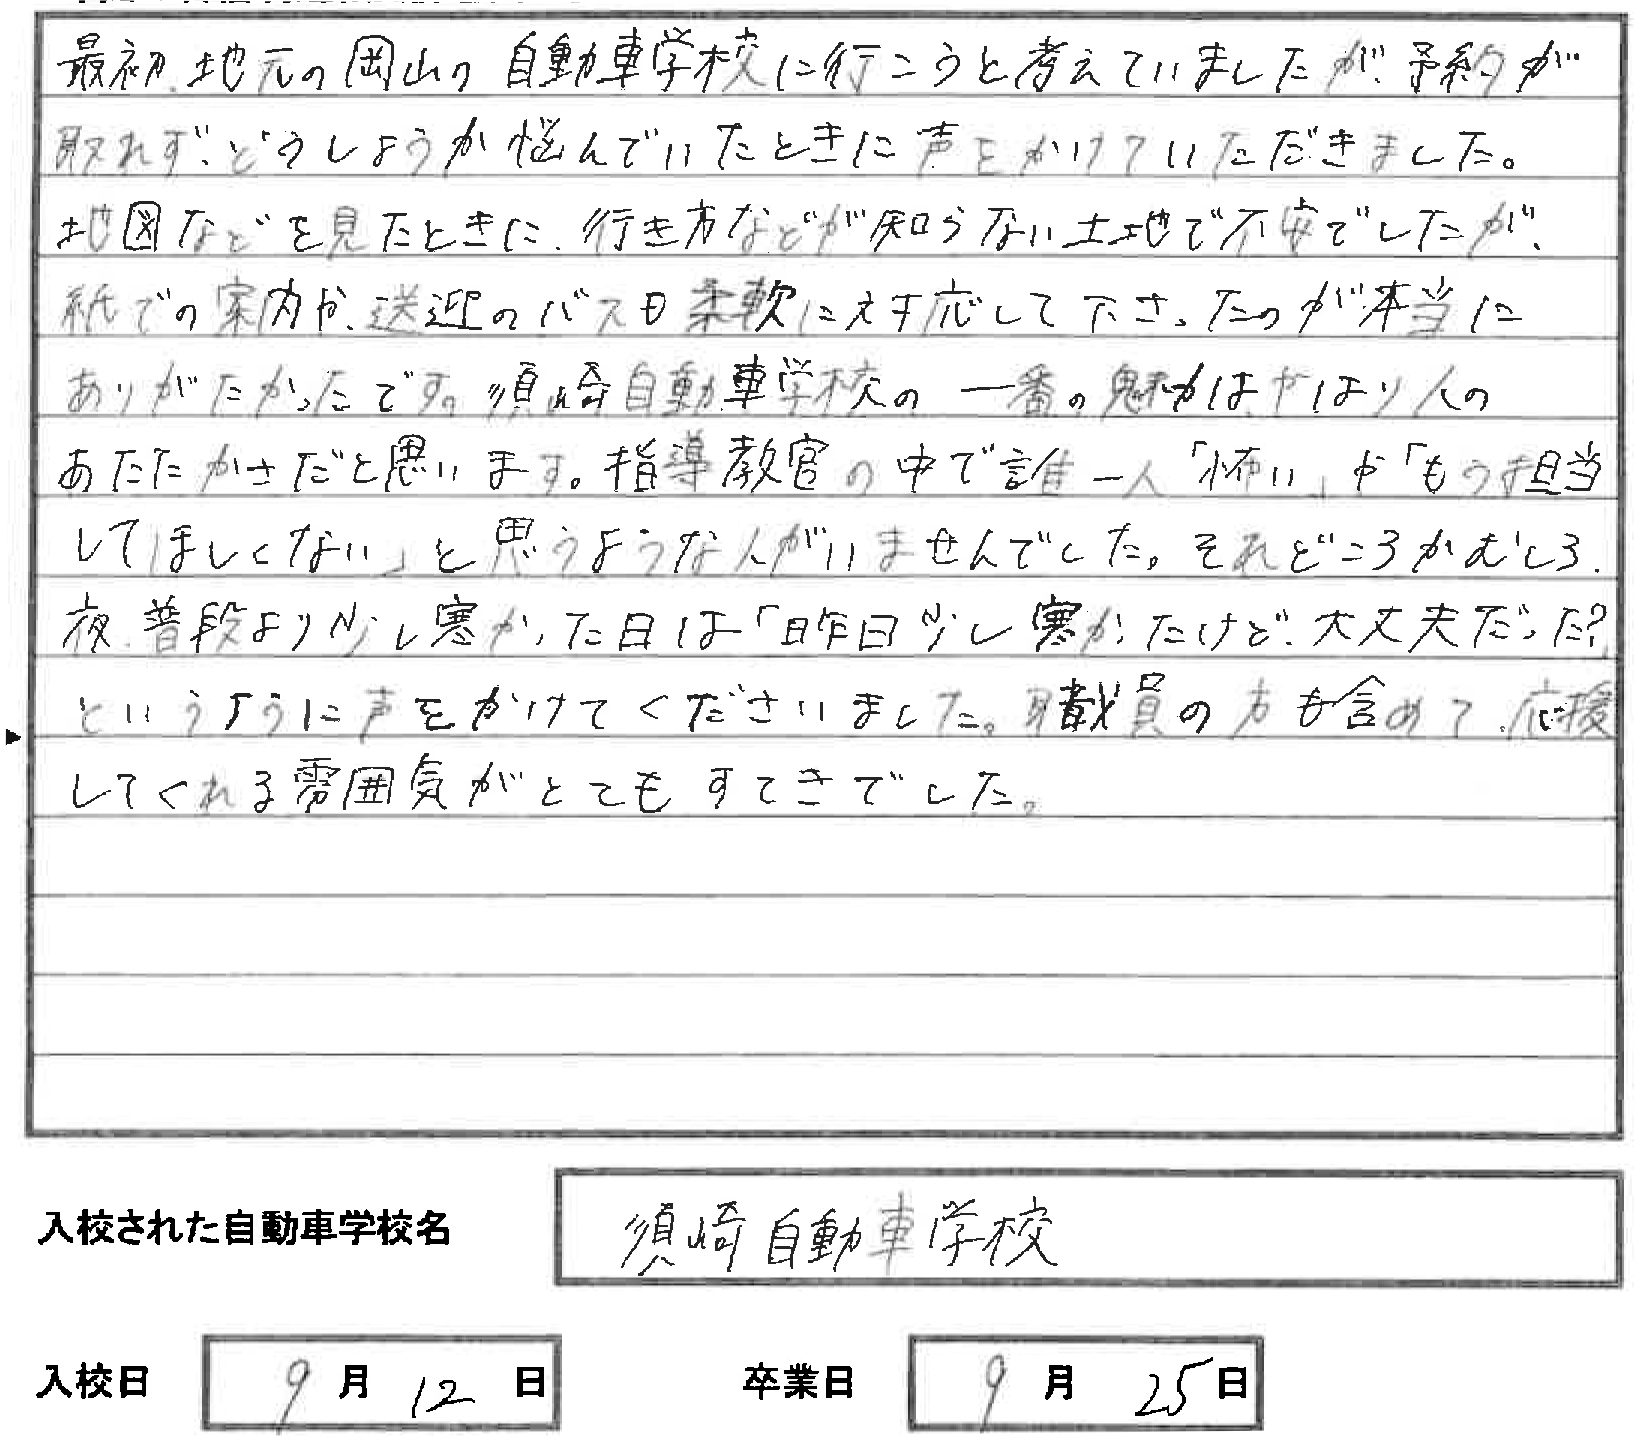 最初、地元の岡山の自動車学校に行こうと考えていましたが、予約が
取れず、どうしようか悩んでいたときに声をかけていただきました。
地図などを見たときに、行き方などが知らない土地で不安でしたが、
紙での案内や、送迎のバスも柔軟に対応して下さったのが本当に
ありがたかったです。須崎自動車学校の一番の魅力はやはり人の
あたたかさだと思います。指導教官の中で誰一人「怖い」や「もう担当
してほしくない」と思うような人がいませんでした。それどころかむしろ、
夜、普段より少し寒かった日は「昨日少し寒かったけど、大丈夫だった?」
というように声をかけてくださいました。職員の方も含めて、応援
してくれる雰囲気がとてもすてきでした。
入校された自動車学校名 須崎自動車学校
入校日 9月12日 卒業日 9月25日